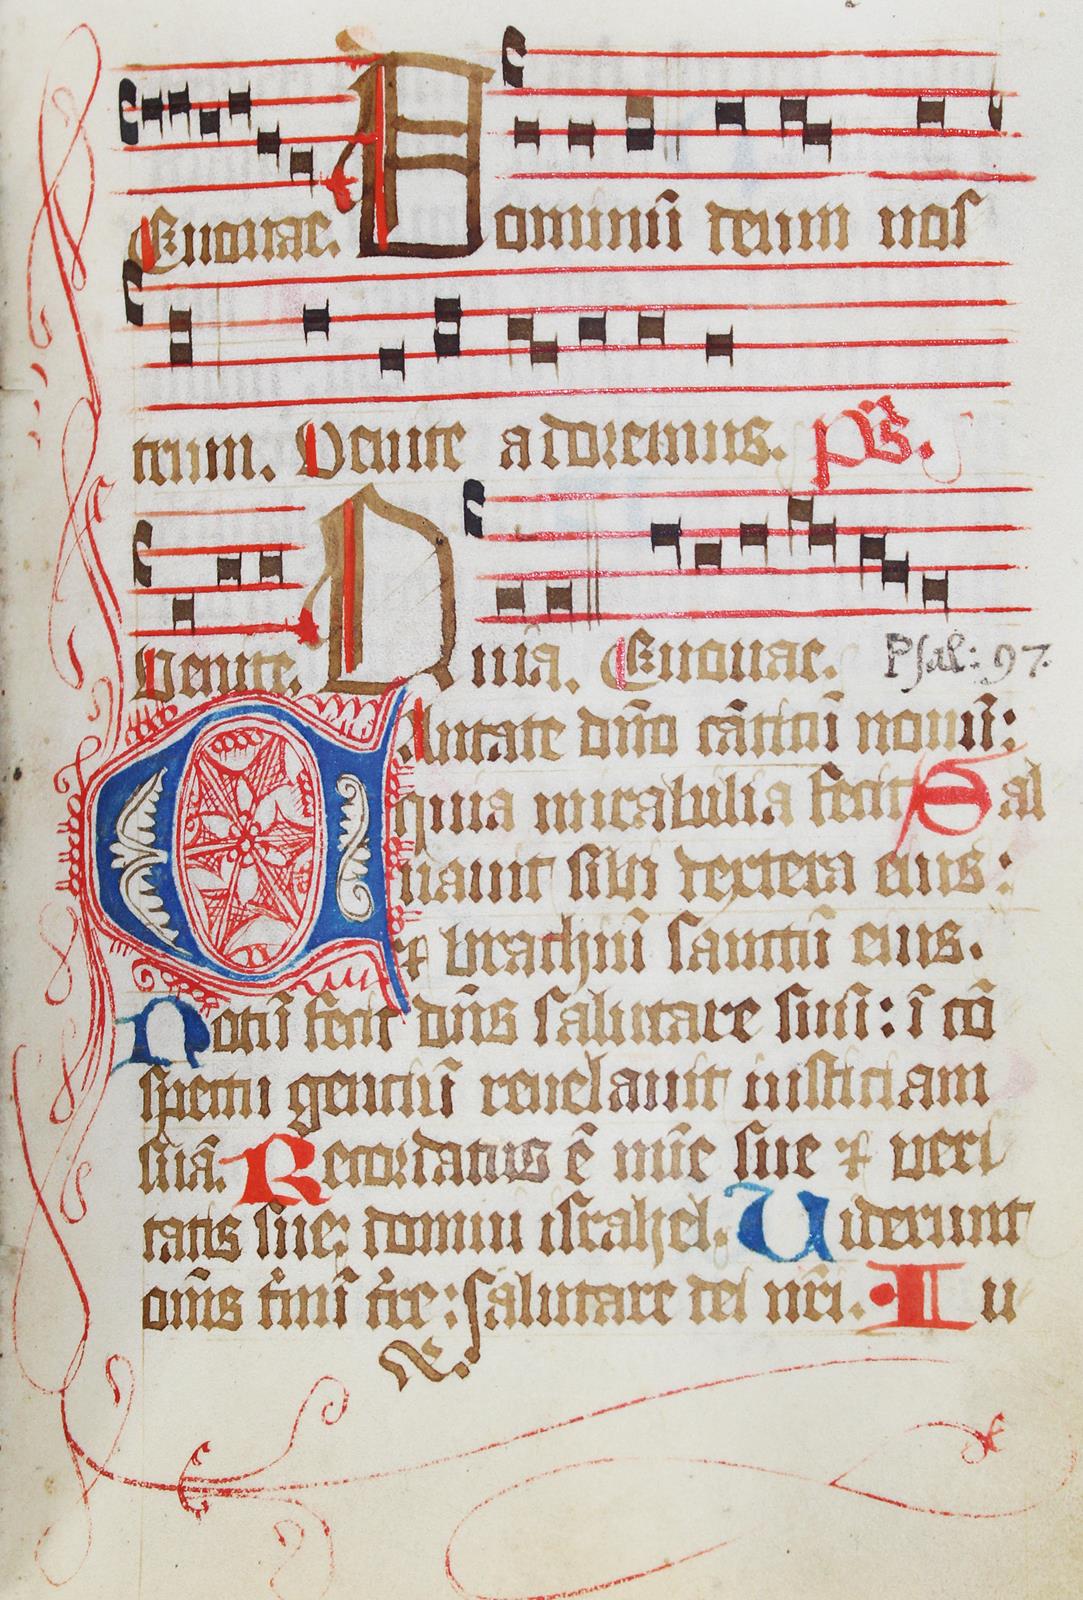 Euouae. Dominū deum nos
trum. Venite adoremus. p̄s.
Venite. Iuīa. Euouae. Psal: 97.
Cantate dn̄o cāticū nouū:
quia mirabilia fecit Sal
uauit sibi dextera eius:
⁊ brachiū sanctū eius.
Notū fecit dn̄s salutare suū: ī cō
spectu genciū reuelauit iusticiam
suā. Recordatus ē mīe sue ⁊ veri
tatis sue: domui israhel. Viderunt
om̄s t̄mī t̄re: salutare dei nr̄i. Iu